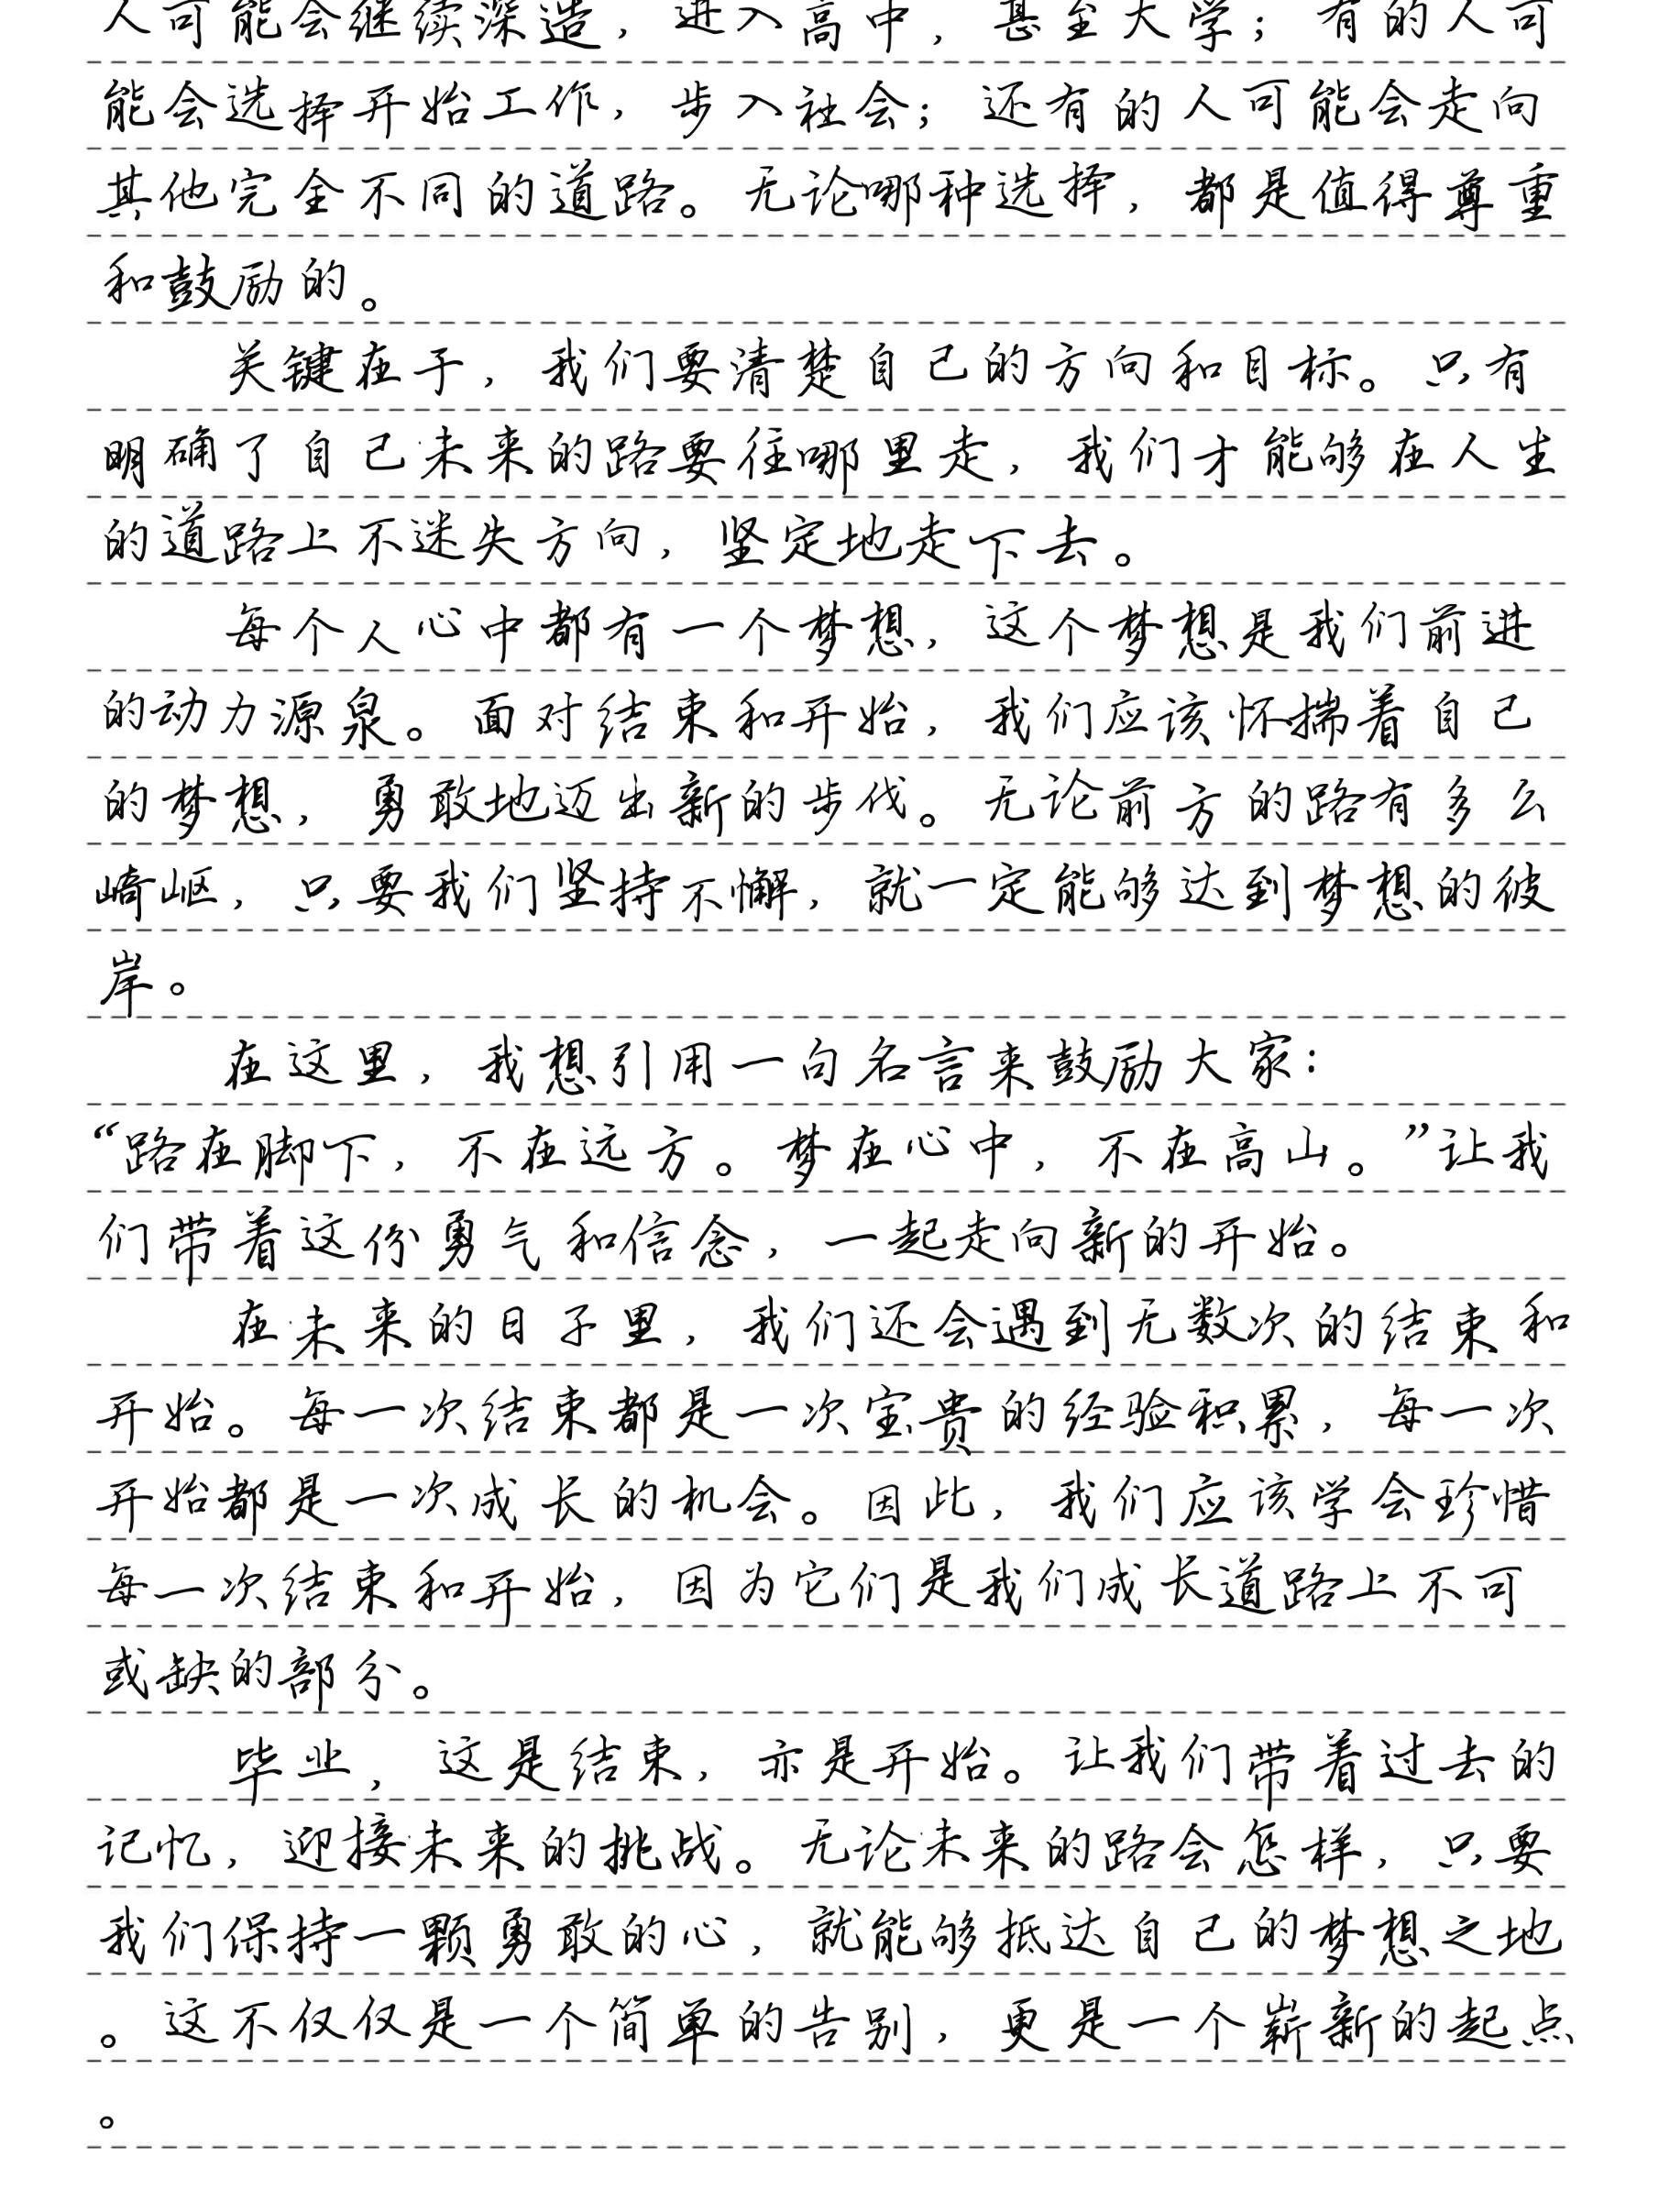 人可能会继续深造，进入高中，甚至大学；有的人可
能会选择开始工作，步入社会；还有的人可能会走向
其他完全不同的道路。无论哪种选择，都是值得尊重
和鼓励的。
关键在于，我们要清楚自己的方向和目标。只有
明确了自己未来的路要往哪里走，我们才能够在人生
的道路上不迷失方向，坚定地走下去。
每个人心中都有一个梦想，这个梦想是我们前进
的动力源泉。面对结束和开始，我们应该怀揣着自己
的梦想，勇敢地迈出新的步伐。无论前方的路有多么
崎岖，只要我们坚持不懈，就一定能够达到梦想的彼
岸。
在这里，我想引用一句名言来鼓励大家：
“路在脚下，不在远方。梦在心中，不在高山。”让我
们带着这份勇气和信念，一起走向新的开始。
在未来的日子里，我们还会遇到无数次的结束和
开始。每一次结束都是一次宝贵的经验积累，每一次
开始都是一次成长的机会。因此，我们应该学会珍惜
每一次结束和开始，因为它们是我们成长道路上不可
或缺的部分。
毕业，这是结束，亦是开始。让我们带着过去的
记忆，迎接未来的挑战。无论未来的路会怎样，只要
我们保持一颗勇敢的心，就能够抵达自己的梦想之地
。这不仅仅是一个简单的告别，更是一个崭新的起点
。